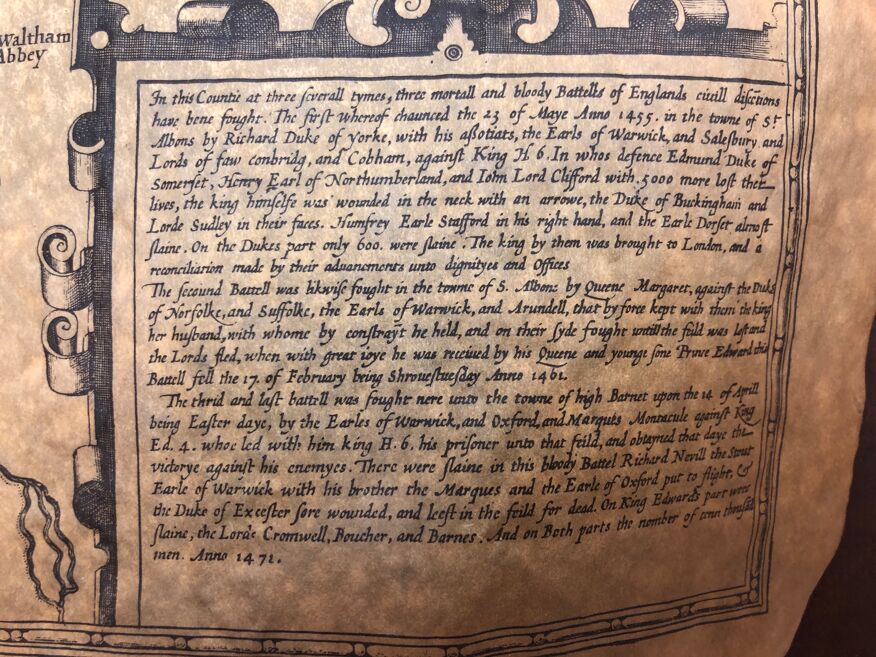 Waltham
Abbey
In this Countie at three ſeverall tymes, three mortall and bloody Battells of Englands civill diſcētions
have bene fought. The firſt whereof chaunced the 23 of Maye Anno 1455. in the towne of Sᵗ
Albons by Richard Duke of Yorke, with his aſſotiats, the Earls of Warwick, and Salesbury, and
Lords of faw conbridg, and Cobham, againſt King H 6. In whos defence Edmund Duke of
Somerſet, Henry Earl of Northumberland, and Iohn Lord Clifford with 5000 more lost ther
lives, the king himſelfe was wounded in the neck with an arrowe, the Duke of Buckingham and
Lorde Sudley in their faces. Humfrey Earle Stafford in his right hand, and the Earle Dorſet almoſt
ſlaine. On the Dukes part only 600. were ſlaine. The king by them was brought to London, and a
reconciliation made by their advancements unto dignityes and Offices
The ſecound Battell was likwiſe fought in the towne of S. Albons by Queene Margaret, againſt the Duke
of Norfolke, and Suffolke, the Earls of Warwick, and Arundell, that by force kept with them the king
her huſband, with whome by conſtraẏt he held, and on their ſyde fought untill the feild was loſt and
the Lords fled, when with great ioye he was received by his Queene and younge ſone Prince Edward this
Battell fell the 17. of February being Shrovestuesday Anno 1461.
The thrid and laſt battell was fought nere unto the towne of high Barnet upon the 14 of Aprill
being Easter daye, by the Earles of Warwick, and Oxford, and Marques Montacute againſt King
Ed. 4. who led with him king H. 6. his priſoner unto that feild, and obtayned that daye the
victorye againſt his enemyes. There were ſlaine in this bloody Battel Richard Nevill the Stout
Earle of Warwick with his brother the Marques and the Earle of Oxford put to flight, &
the Duke of Exceſter ſore wounded, and leeft in the feild for dead. On King Edwards part were
ſlaine, the Lords Cromwell, Boucher, and Barnes. And on Both parts the nomber of tenn thouſand
men. Anno 1471.